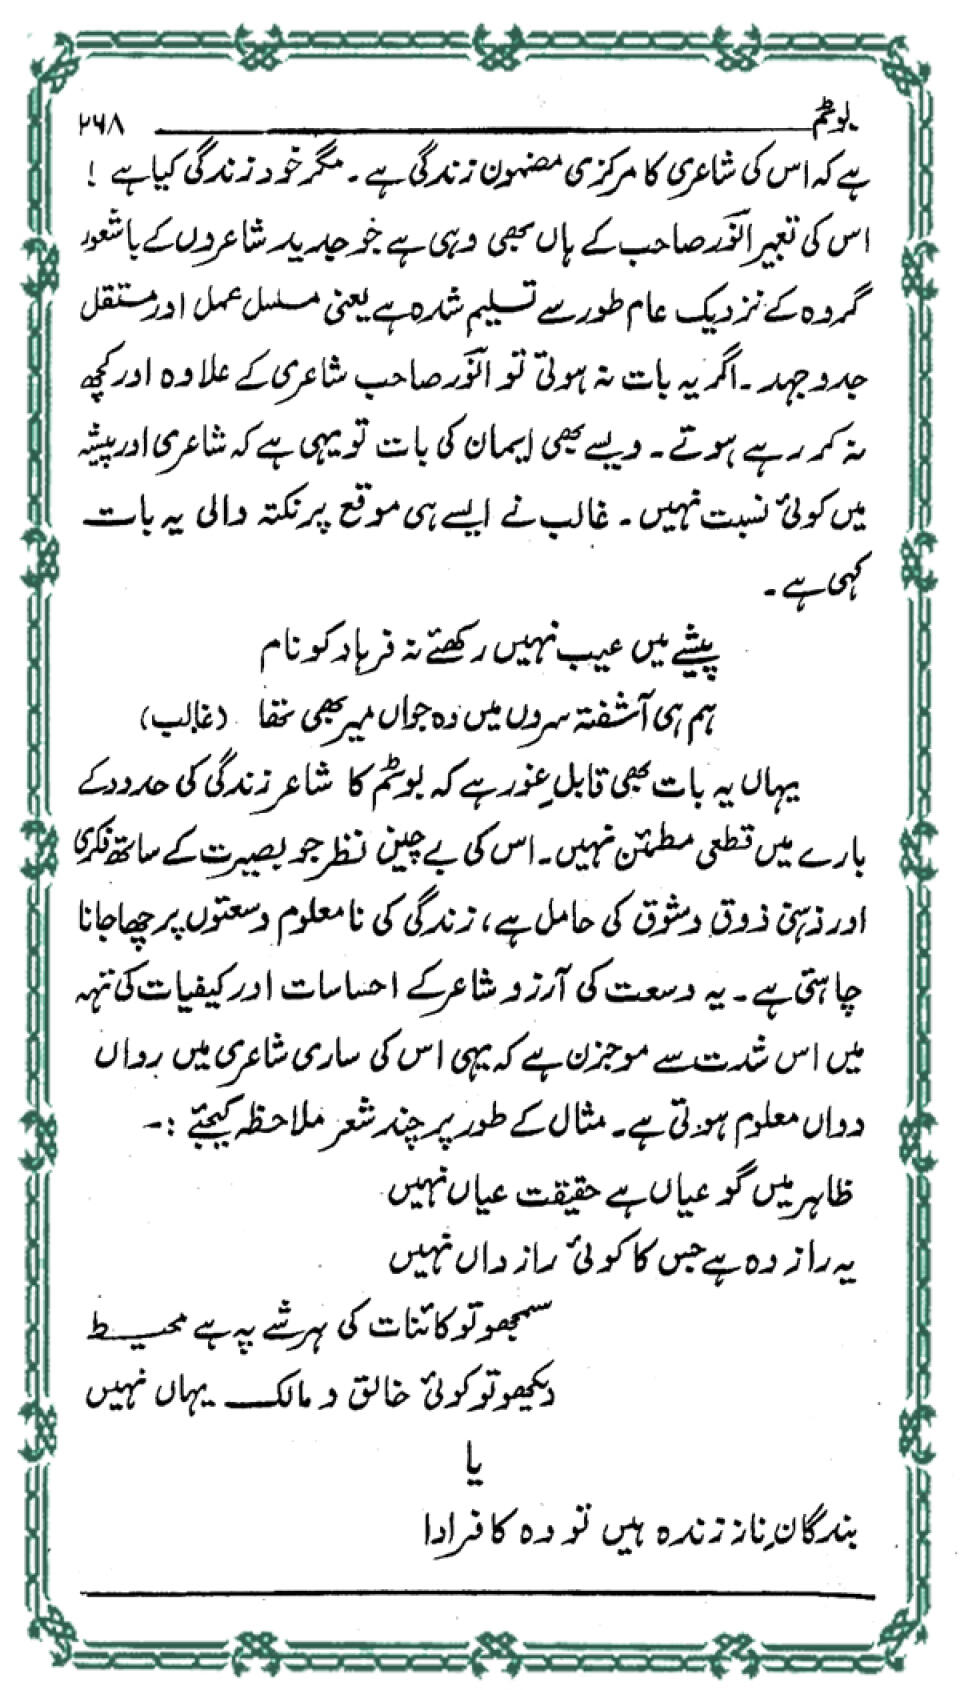 بوٹم ۲۶۸
ہے کہ اس کی شاعری کا مرکزی مضمون زندگی ہے۔ مگر خود زندگی کیا ہے !
اس کی تعبیر انوؔر صاحب کے ہاں بھی وہی ہے جو جدید شاعروں کے باشعور
گروہ کے نزدیک عام طور سے تسلیم شدہ ہے یعنی مسلسل عمل اور مستقل
جدوجہد۔ اگر یہ بات نہ ہوتی تو انوؔر صاحب شاعری کے علاوہ اور کچھ
نہ کر رہے ہوتے۔ ویسے بھی ایمان کی بات تو یہی ہے کہ شاعری اور پیشہ
میں کوئی نسبت نہیں۔ غالب نے ایسے ہی موقع پر نکتہ والی یہ بات
کہی ہے۔
پیشے میں عیب نہیں رکھئے نہ فرہاد کو نام
ہم ہی آشفتہ سروں میں وہ جواں میر بھی تھا (غالب)
یہاں یہ بات بھی قابلِ غور ہے کہ بوٹم کا شاعر زندگی کی حدود کے
بارے میں قطعی مطمئن نہیں۔ اس کی بے چین نظر جو بصیرت کے ساتھ فکری
اور ذہنی ذوق وشوق کی حامل ہے، زندگی کی نامعلوم وسعتوں پر چھا جانا
چاہتی ہے۔ یہ وسعت کی آرزو شاعر کے احساسات اور کیفیات کی تہہ
میں اس شدت سے موجزن ہے کہ یہی اس کی ساری شاعری میں رواں
دواں معلوم ہوتی ہے۔ مثال کے طور پر چند شعر ملاحظہ کیجئے :۔
ظاہر میں گو عیاں ہے حقیقت عیاں نہیں
یہ راز وہ ہے جس کا کوئی رازداں نہیں
سمجھو تو کائنات کی ہر شے پہ ہے محیط
دیکھو تو کوئی خالق و مالک یہاں نہیں
یا
بندگانِ ناز زندہ ہیں تو وہ کافر ادا